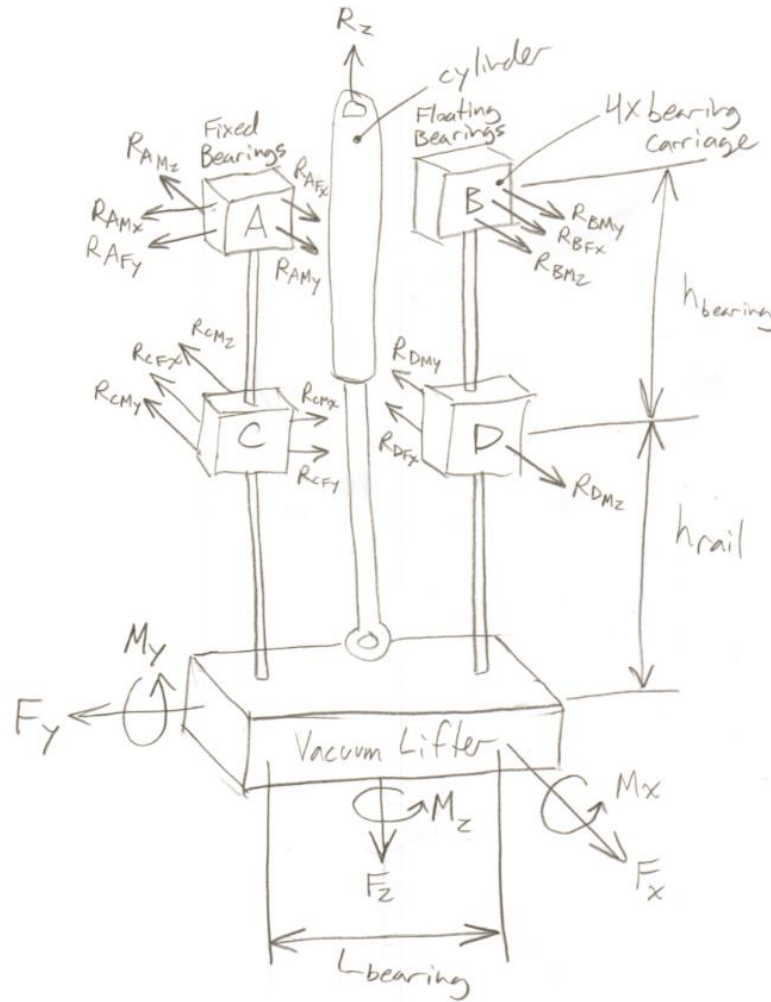 Rz
cylinder
Fixed
Bearings
Floating
Bearings
4x bearing
carriage
RAMz
RAFx
RAMx
RAFy
RAMy
A
B
RBMy
RBFx
RBMz
hbearing
RCMz
RCFx
RCMy
RCMx
RCFy
C
RDMy
RDFx
D
RDMz
hrail
My
Fy
Vacuum Lifter
Mz
Fz
Mx
Fx
Lbearing